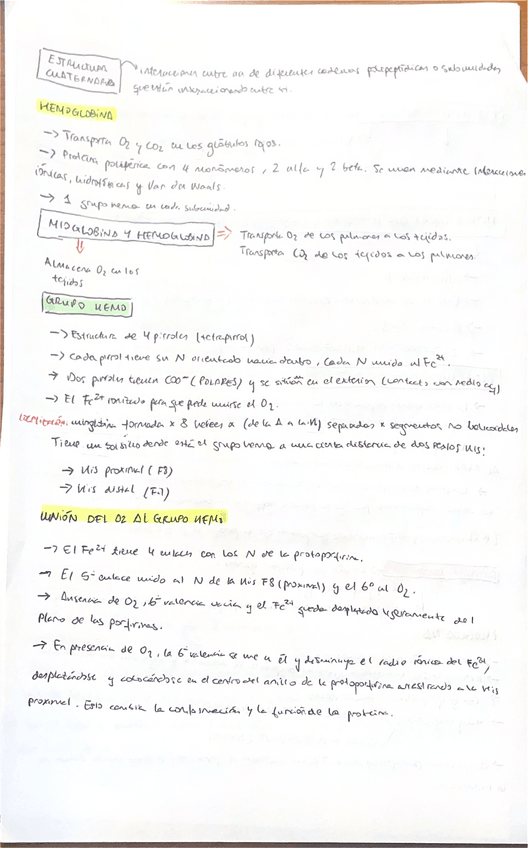 ESTRUCTURA CUATERNARIA → interacciones entre aa de diferentes cadenas polipeptídicas o subunidades
que están interaccionando entre sí.
HEMOGLOBINA
→ Transporta O2 y CO2 en los glóbulos rojos.
→ Proteína polimérica con 4 monómeros, 2 alfa y 2 beta. Se unen mediante interacciones
iónicas, hidrofóbicas y Van der Waals.
→ 1 grupo hemo en cada subunidad.
MIOGLOBINA Y HEMOGLOBINA ⇒ Transporta O2 de los pulmones a los tejidos.
Transporta CO2 de los tejidos a los pulmones.
Almacena O2 en los
tejidos
GRUPO HEMO
→ Estructura de 4 pirroles (tetrapirrol)
→ Cada pirrol tiene su N orientado hacia dentro, cada N unido al Fe2+.
→ Dos pirroles tienen COO- (POLARES) y se sitúan en el exterior (contacto con medio
→ El Fe2+ ionizado para que pueda unirse el O2.
mioglobina formada x 8 hélices α (de la A a la H) separadas x segmentos no helicoidales
Tiene un bolsillo donde está el grupo hemo a una cierta distancia de dos restos His:
→ His proximal (F8)
→ His distal (E7)
UNIÓN DEL O2 AL GRUPO HEMO
→ El Fe2+ tiene 4 enlaces con los N de la protoporfirina.
→ El 5º enlace unido al N de la His F8 (proximal) y el 6º al O2.
→ Ausencia de O2, 6ª valencia vacía y el Fe2+ queda desplazado ligeramente del
plano de las porfirinas.
→ En presencia de O2, la 6ª valencia se une a él y disminuye el radio iónico del Fe2+,
desplazándose y colocándose en el centro del anillo de la protoporfirina arrastrando a la His
proximal. Esto cambia la conformación y la función de la proteína.